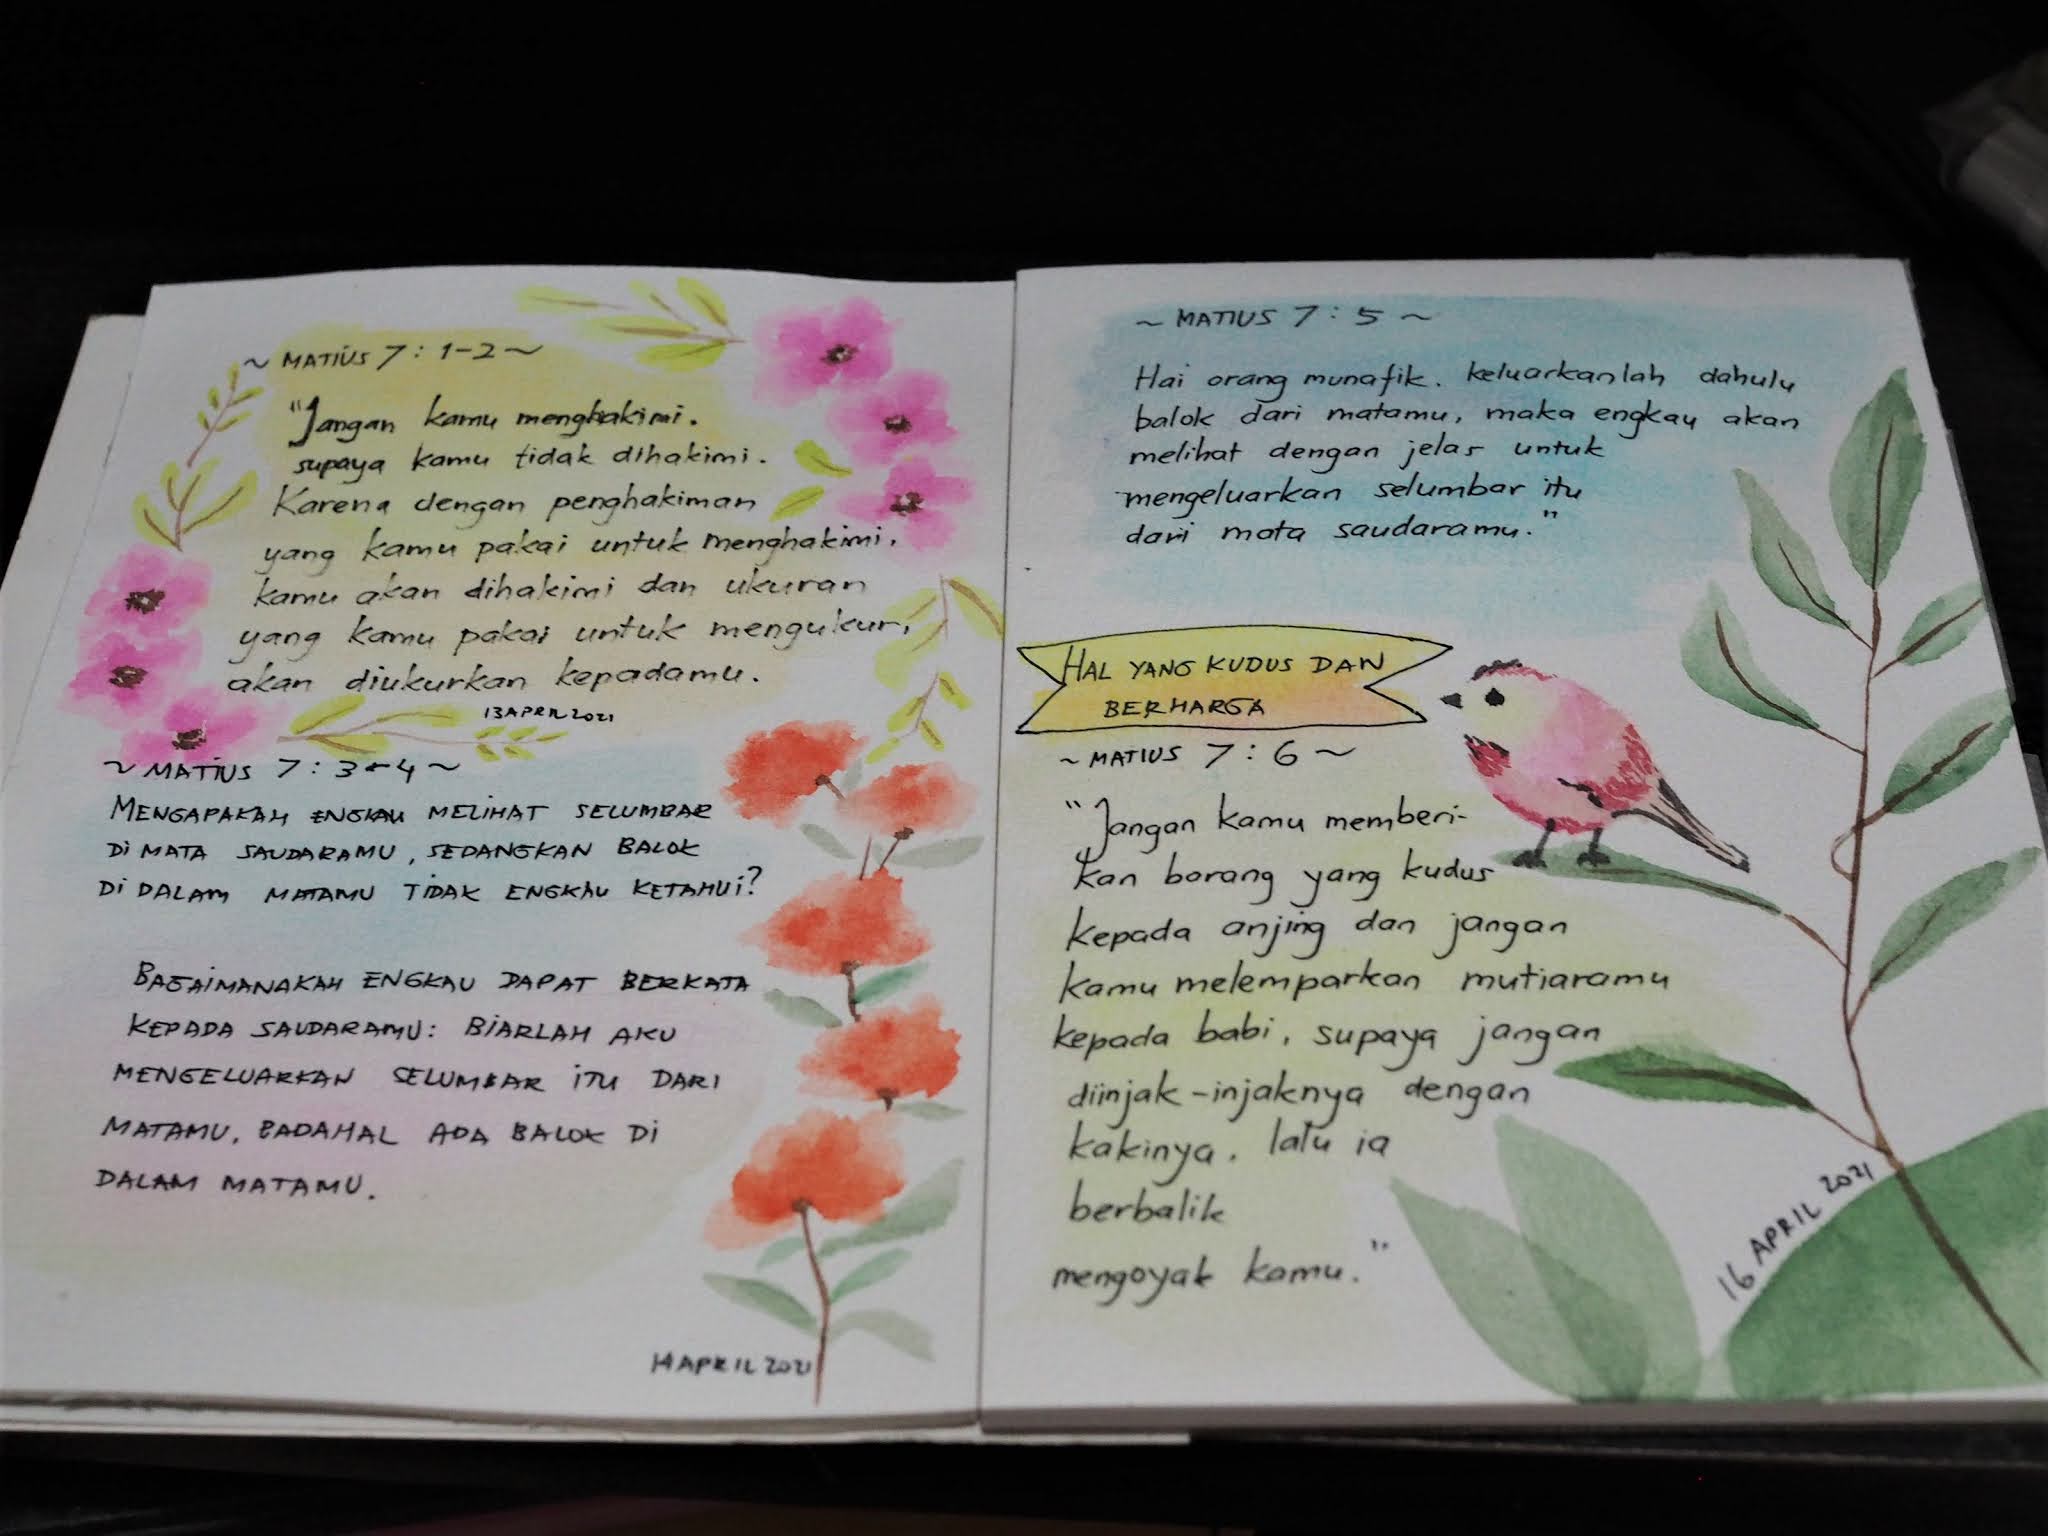 ~ MATIUS 7 : 1-2 ~
"Jangan kamu menghakimi.
supaya kamu tidak dihakimi.
Karena dengan penghakiman
yang kamu pakai untuk menghakimi,
kamu akan dihakimi dan ukuran
yang kamu pakai untuk mengukur,
akan diukurkan kepadamu.
13 APRIL 2021
~ MATIUS 7 : 3-4 ~
MENGAPAKAH ENGKAU MELIHAT SELUMBAR
DI MATA SAUDARAMU, SEDANGKAN BALOK
DI DALAM MATAMU TIDAK ENGKAU KETAHUI?
BAGAIMANAKAH ENGKAU DAPAT BERKATA
KEPADA SAUDARAMU: BIARLAH AKU
MENGELUARKAN SELUMBAR ITU DARI
MATAMU, PADAHAL ADA BALOK DI
DALAM MATAMU.
14 APRIL 2021
~ MATIUS 7 : 5 ~
Hai orang munafik. keluarkanlah dahulu
balok dari matamu, maka engkau akan
melihat dengan jelas untuk
mengeluarkan selumbar itu
dari mata saudaramu."
HAL YANG KUDUS DAN
BERHARGA
~ MATIUS 7 : 6 ~
"Jangan kamu memberi-
kan barang yang kudus
kepada anjing dan jangan
kamu melemparkan mutiaramu
kepada babi, supaya jangan
diinjak-injaknya dengan
kakinya. lalu ia
berbalik
mengoyak kamu."
16 APRIL 2021